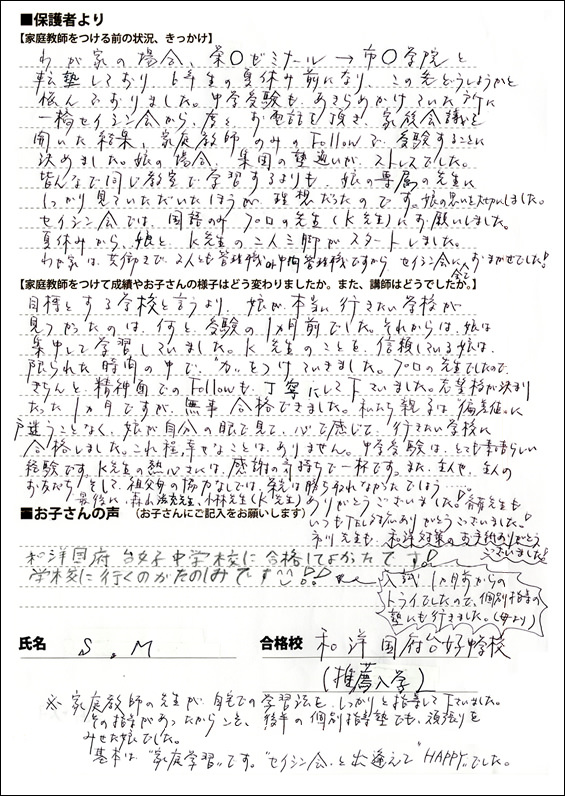 ■保護者より
【家庭教師をつける前の状況、きっかけ】
わが家の場合、栄○ゼミナール→市○学院と
転塾しており、6年生の夏休み前になり、この先どうしようかと
悩んでおりました。中学受験も、あきらめかけていた所に
一橋セイシン会から、度々お電話を頂き、家族会議を
開いた結果、家庭教師のみのFollowで、受験することに
決めました。娘の場合、集団の塾通いが、ストレスでした。
皆んなで同じ教室で学習するよりも、娘の専属の先生に
しっかり見ていただいたほうが、理想だったのです。娘の思いを大切にしました。
セイシン会では、国語のみ プロの先生(K先生)にお願いしました。
夏休みから、娘と、K先生の二人三脚がスタートしました。
わが家は、夫婦とで、2人とも管理職or中間管理職ですから セイシン会に全ておまかせでした!
【家庭教師をつけて成績やお子さんの様子はどう変わりましたか。また、講師はどうでしたか。】
目標とする学校と言うより、娘が本当に行きたい学校が
見つかったのは、何と、受験の1ヵ月前でした。それからは、娘は
集中して学習していました。K先生のことを、信頼している娘は、
限られた時間の中で、"力"をつけていきました。プロの先生でしたので、
きちんと、精神面でのFollowも、丁寧にして下さいました。志望校が決まり
たった1ヵ月ですが、無事 合格できました。私たち親子は 偏差値に
戸迷うことなく、娘が自分の眼で見て、心で感じて、行きたい学校に
合格しました。これ程、幸せなことは、ありません。中学受験は、とても素晴らしい
経験です。K先生の熱心さには、感謝の気持ちで一杯です。また、主人や、主人の
お友だち、そして、祖父母の協力なしでは、栄光は勝ち取れなかったでしょう
最後に、森山浩克先生、小林先生(K先生)ありがとうございました!斉藤先生も
いつもTELありがとうございました!
市川先生も、和洋対策のお手紙ありがとう
ございました!
■お子さんの声 (お子さんにご記入をお願いします)
和洋国府台女子中学校に合格してよかったです!
学校に行くのがたのしみです!!
入試1ヵ月前からの
トライでしたので、個別指導の
塾にも行きました。(母より)
氏名 S.M
合格校 和洋国府台女子中学校
(推薦入学)
※家庭教師の先生が、自宅での学習法も、しっかりと指導して下さいました。
その指導があったからこそ、後半の個別指導塾でも、頑張りを
みせた娘でした。
基本は"家庭学習"です。"セイシン会"と出逢えて"HAPPY"でした。